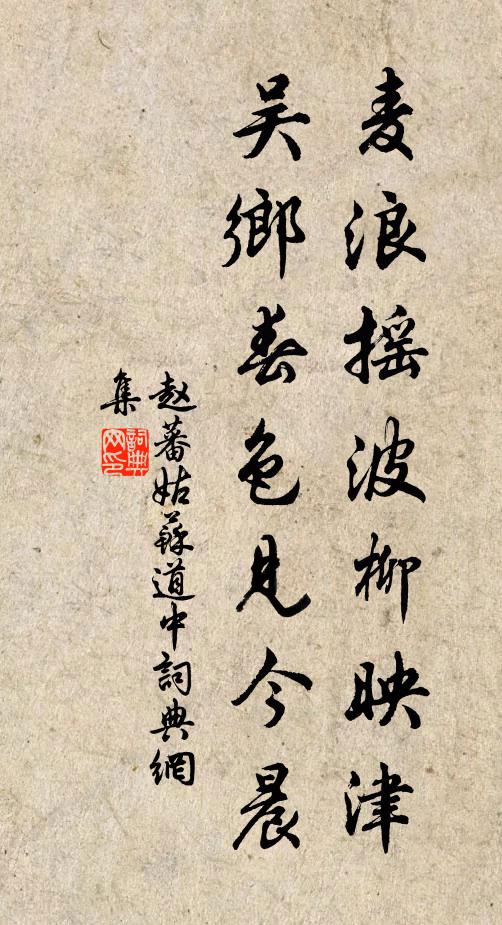 麦浪摇波柳映津
吴鄉春色見今晨
赵蕃姑蘇道中詞典網
集
詞典网印